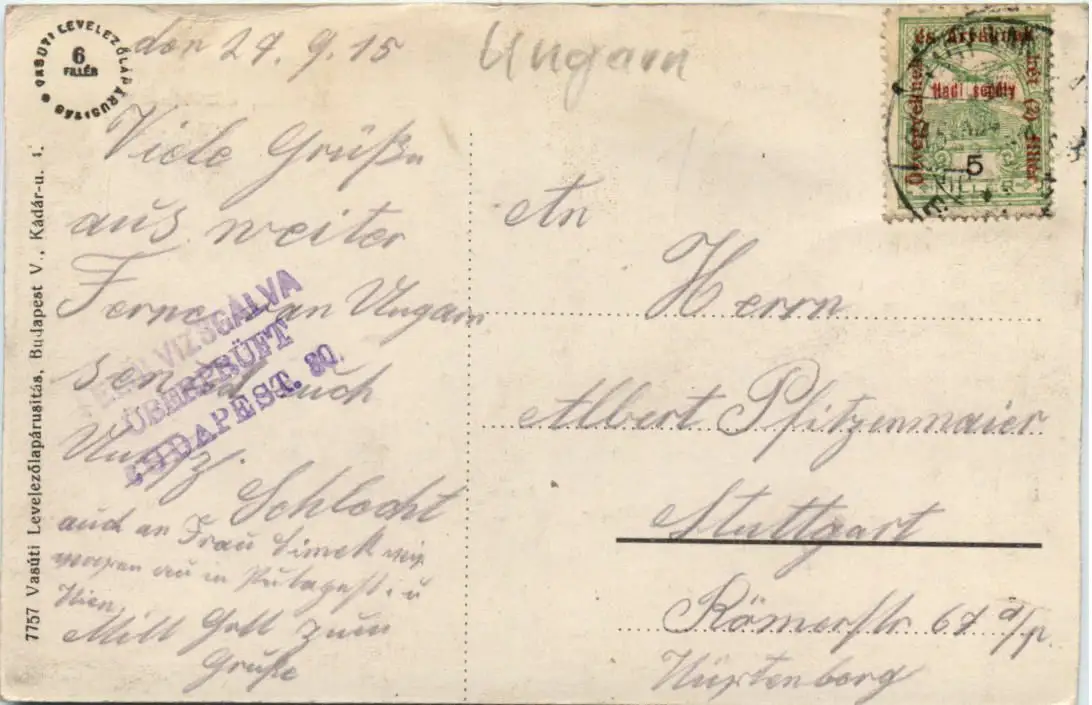 VASUTI LEVELEZŐLAPÁRUSITÁS
6
FILLÉR
den 29. 9. 15
Ungarn
Viele Grüße
aus weiter
Ferne von Ungarn
sendet euch
Schlecht
auch an Frau
in Budapest. u
Wien.
Mitt Gott zum
Gruße
FELÜLVIZSGÁLVA
ÜBERPRÜFT
BUDAPEST. 30.
7757 Vasúti Levelezőlapárusitás, Budapest V., Kádár-u. 1.
Özvegyeknek
és árváknak
két (2) fillér
Hadi segély
5
FILLÉR
An
Herrn
Albert Pfitzenmaier
Stuttgart
Römerstr 67 a/p
Würtenberg